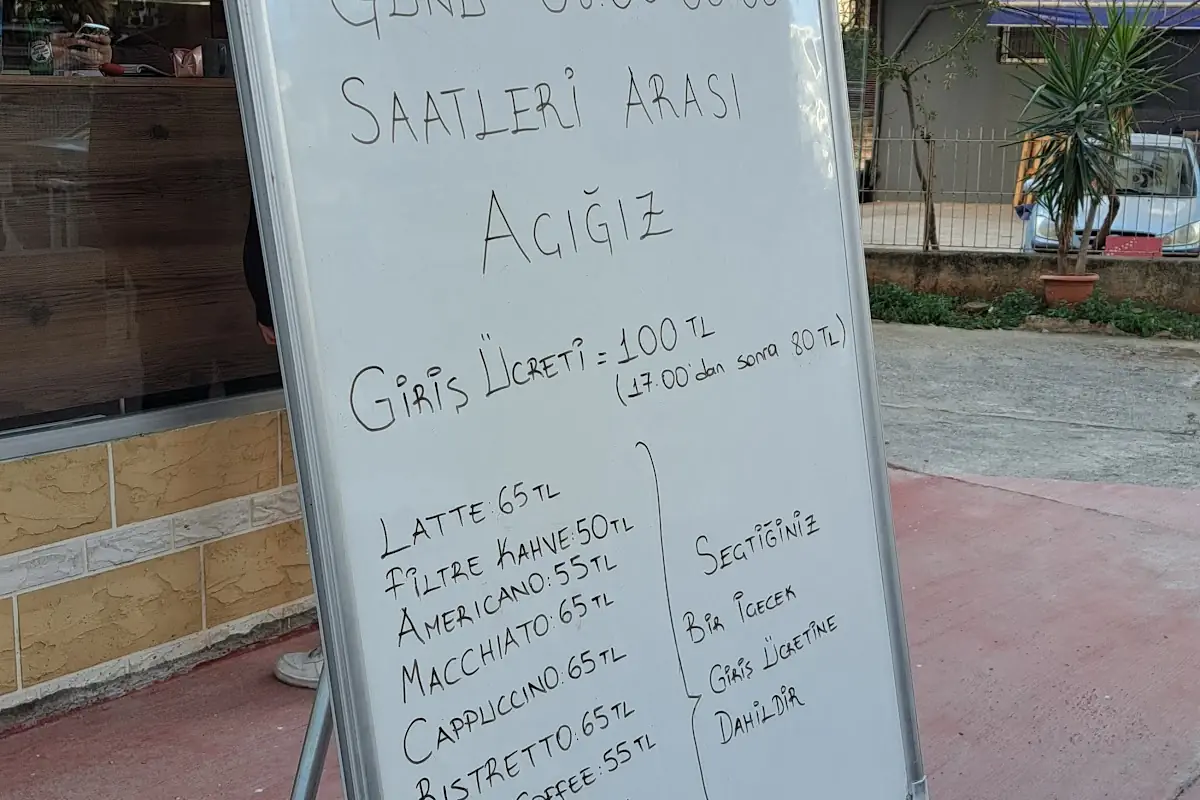 SAATLERİ ARASI
AÇIĞIZ
GİRİŞ ÜCRETİ = 100 TL
(17.00'dan sonra 80 TL)
LATTE: 65 TL
FİLTRE KAHVE: 50 TL
AMERICANO: 55 TL
MACCHIATO: 65 TL
CAPPUCCINO: 65 TL
RISTRETTO: 65 TL
COFFEE: 55 TL
SEÇTİĞİNİZ
BİR İÇECEK
GİRİŞ ÜCRETİNE
DAHİLDİR